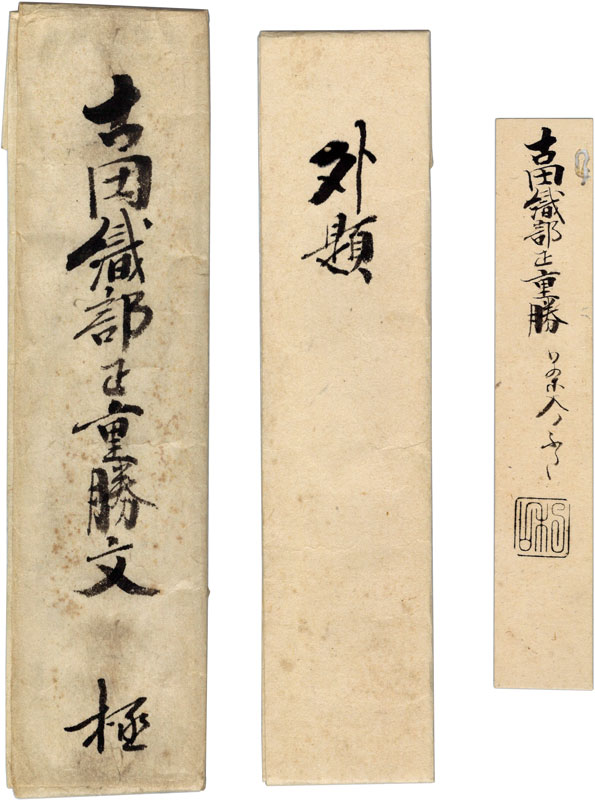 古田織部正重勝文 極
外題
古田織部正重勝